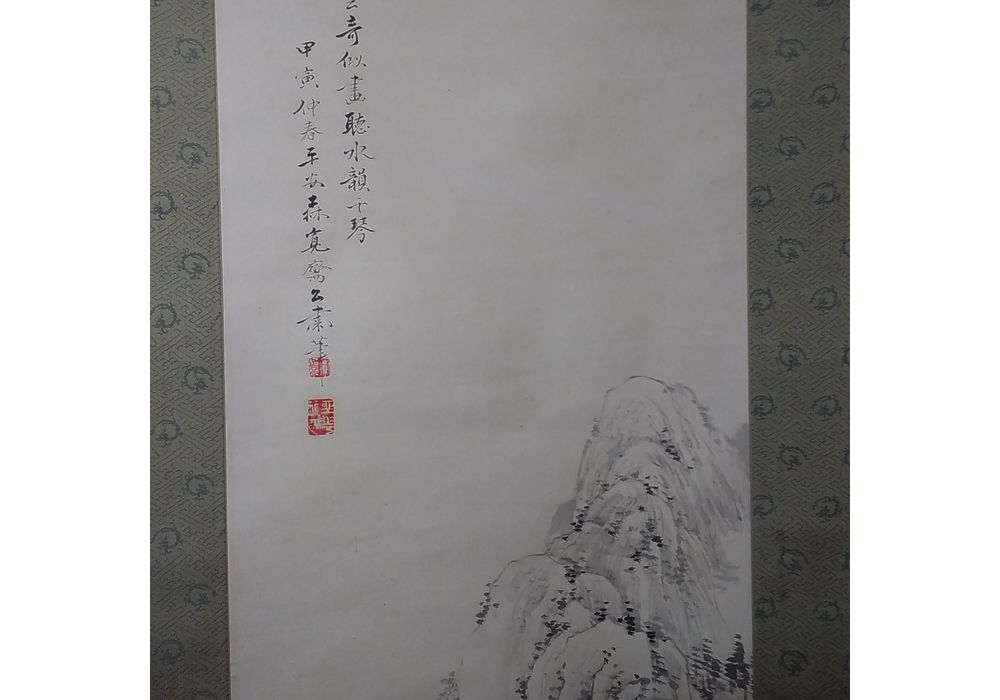 奇似畫聽水韻于琴
甲寅仲春平安森寬齋公肅筆